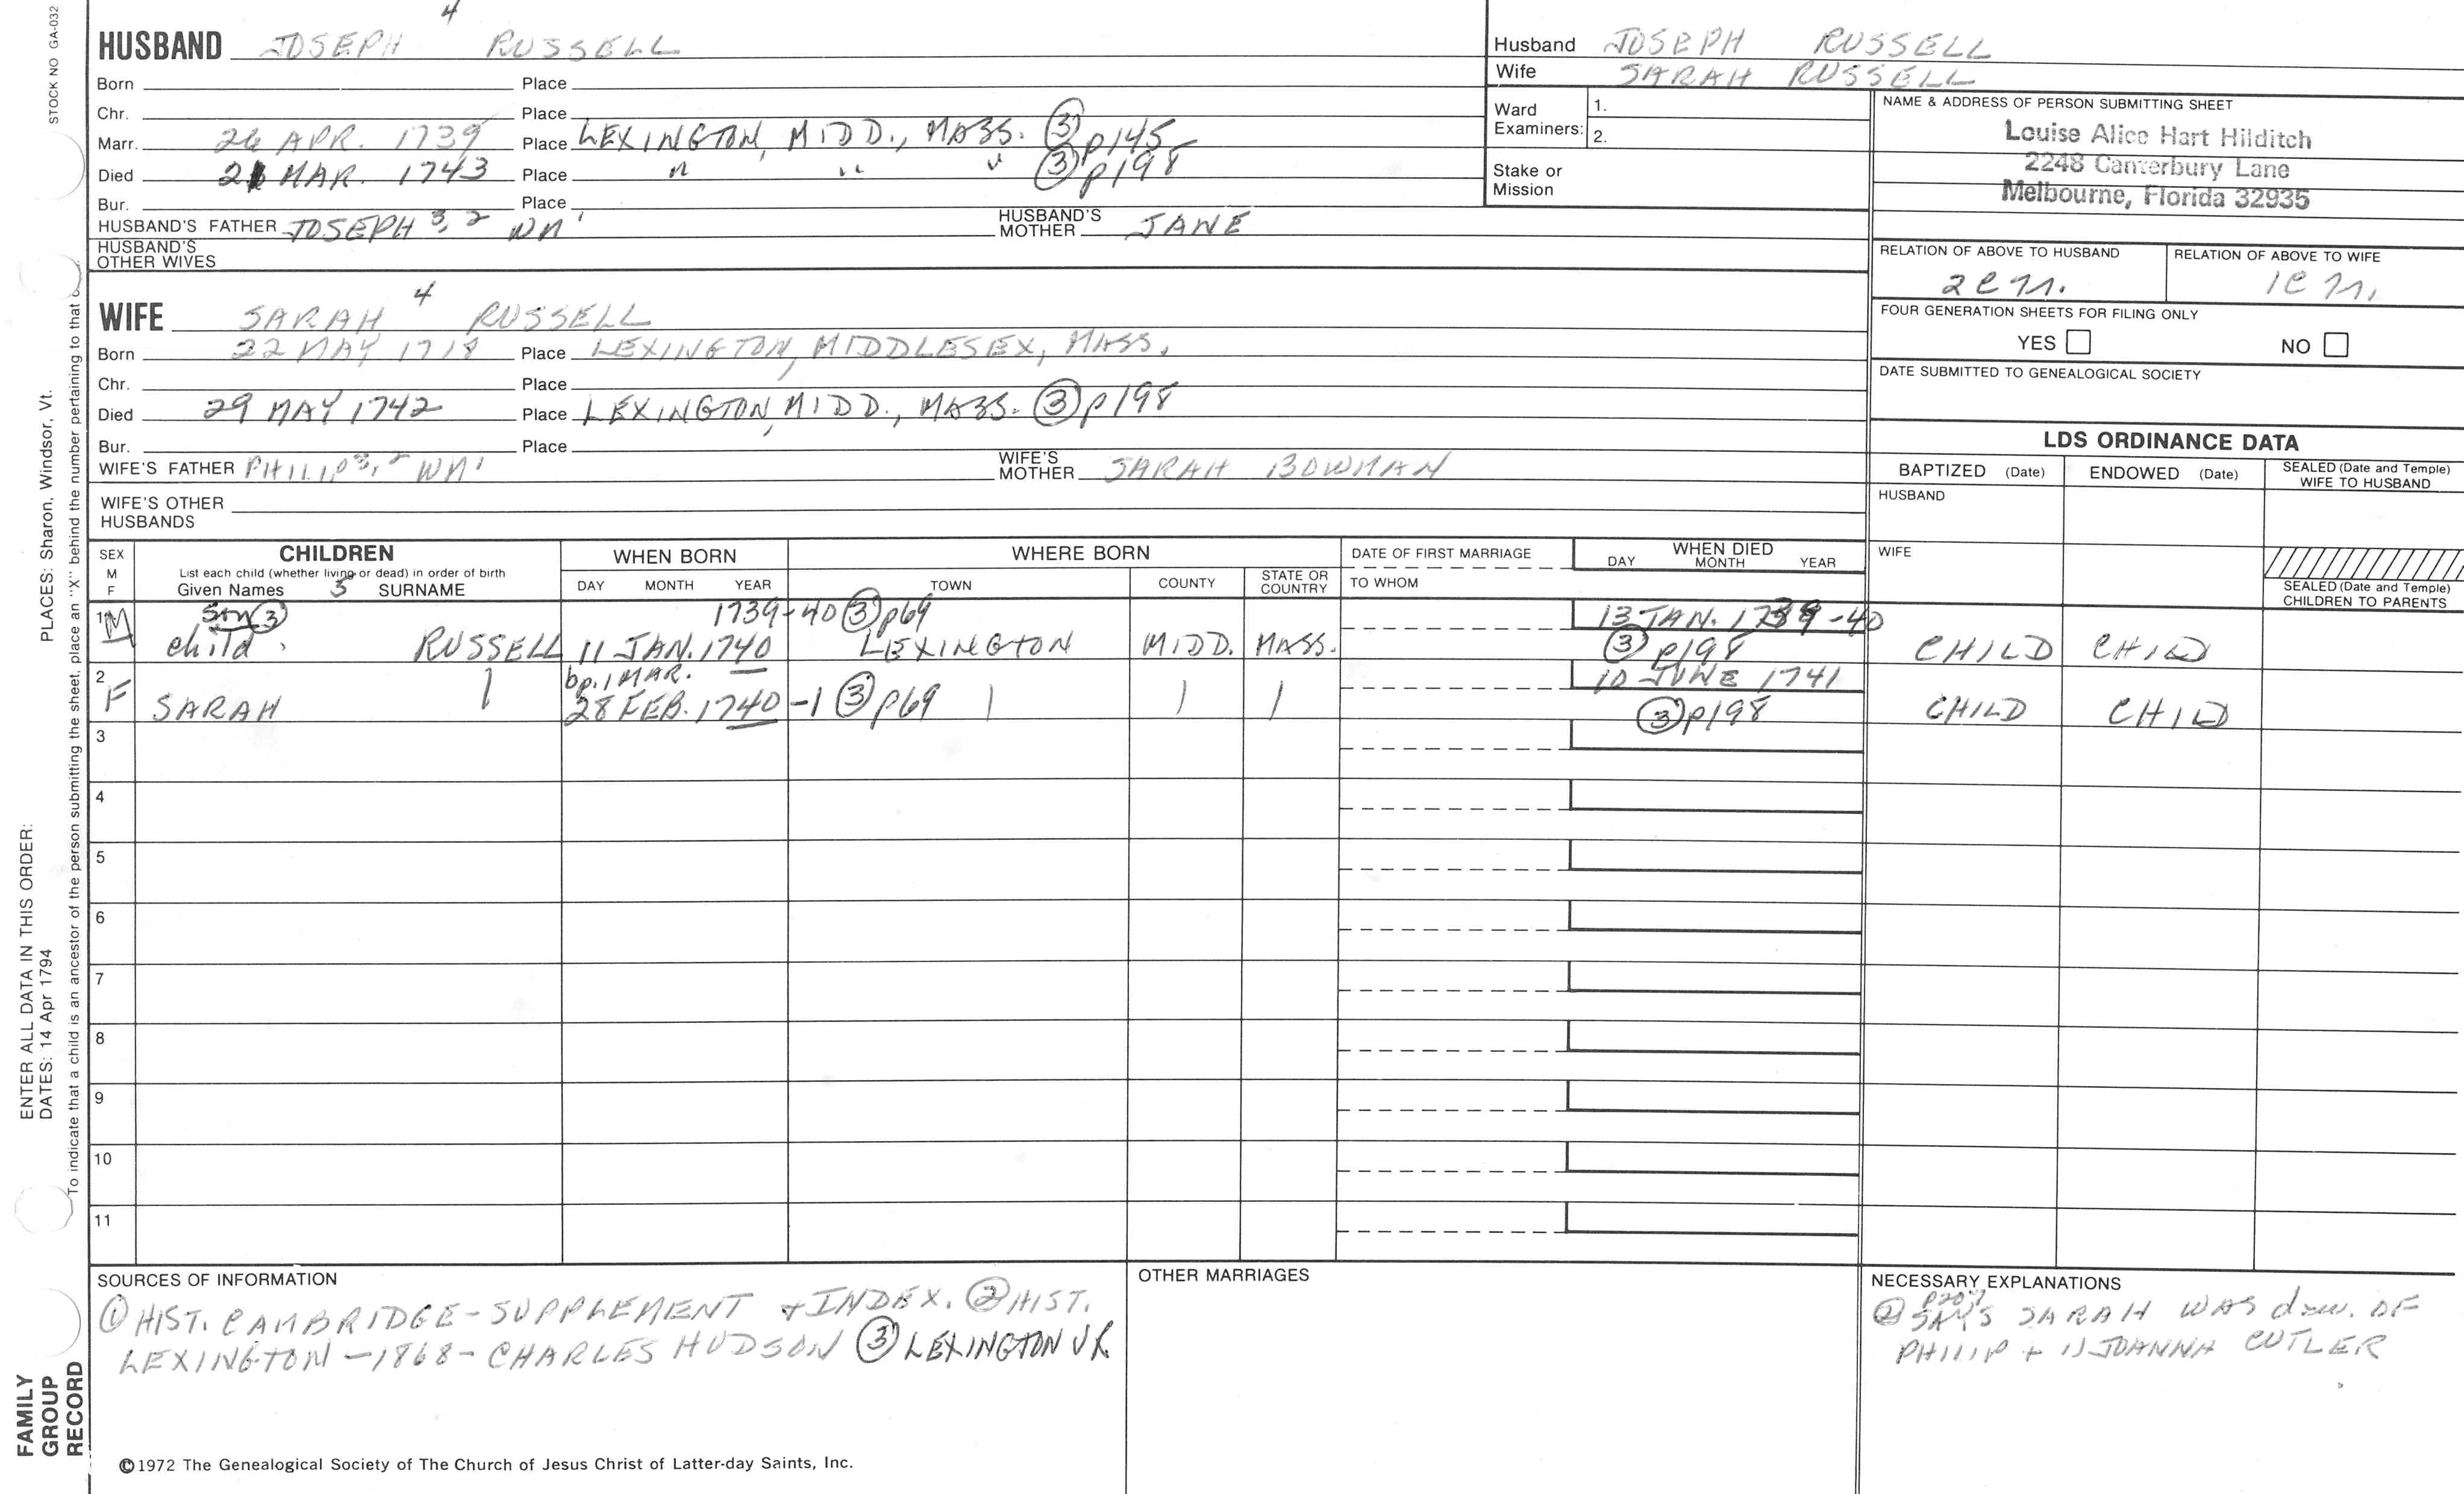 STOCK NO GA-032
4
HUSBAND JOSEPH RUSSELL
Born Place
Chr. Place
Marr. 26 APR. 1739 Place LEXINGTON, MIDD., MASS. ③ p145
Died 21 MAR. 1743 Place " " " ③ p198
Bur. Place
HUSBAND'S FATHER JOSEPH 3, 2 WM 1 HUSBAND'S MOTHER JANE
HUSBAND'S OTHER WIVES
Husband JOSEPH RUSSELL
Wife SARAH RUSSELL
Ward Examiners: 1.
2.
Stake or Mission
NAME & ADDRESS OF PERSON SUBMITTING SHEET
Louise Alice Hart Hilditch
2248 Canterbury Lane
Melbourne, Florida 32935
RELATION OF ABOVE TO HUSBAND RELATION OF ABOVE TO WIFE
FOUR GENERATION SHEETS FOR FILING ONLY
YES NO
DATE SUBMITTED TO GENEALOGICAL SOCIETY
4
WIFE SARAH RUSSELL
Born 22 MAY 1718 Place LEXINGTON, MIDDLESEX, MASS.
Chr. Place
Died 29 MAY 1742 Place LEXINGTON, MIDD., MASS. ③ p198
Bur. Place
WIFE'S FATHER PHILIP 3, 2 WM 1 WIFE'S MOTHER SARAH BOWMAN
WIFE'S OTHER HUSBANDS
LDS ORDINANCE DATA
BAPTIZED (Date) ENDOWED (Date) SEALED (Date and Temple) WIFE TO HUSBAND
HUSBAND
WIFE
SEALED (Date and Temple) CHILDREN TO PARENTS
SEX M F
CHILDREN
List each child (whether living or dead) in order of birth
Given Names 5 SURNAME
WHEN BORN
DAY MONTH YEAR
WHERE BORN
TOWN COUNTY STATE OR COUNTRY
DATE OF FIRST MARRIAGE
TO WHOM
WHEN DIED
DAY MONTH YEAR
1 M Son ③ 1739-40 ③ p69 13 JAN. 1739-40
child. RUSSELL 11 JAN. 1740 LEXINGTON MIDD. MASS. ③ p198 CHILD CHILD
2 F bp. 1 MAR. 10 JUNE 1741
SARAH 28 FEB. 1740-1 ③ p69 ③ p198 CHILD CHILD
3
4
5
6
7
8
9
10
11
SOURCES OF INFORMATION
① HIST. CAMBRIDGE-SUPPLEMENT + INDEX. ② HIST.
LEXINGTON-1868-CHARLES HUDSON ③ LEXINGTON VR
OTHER MARRIAGES
NECESSARY EXPLANATIONS
② SAYS SARAH WAS dau. OF
PHILIP + 1) JOANNA CUTLER
©1972 The Genealogical Society of The Church of Jesus Christ of Latter-day Saints, Inc.
ENTER ALL DATA IN THIS ORDER:
DATES: 14 Apr 1794
PLACES: Sharon, Windsor, Vt.
To indicate that a child is an ancestor of the person submitting the sheet, place an "X" behind the number pertaining to that
FAMILY
GROUP
RECORD